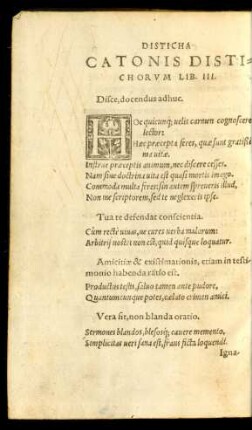 DISTICHA
CATONIS DISTI-
CHORVM LIB. III.
Disce, docendus adhuc.
HOc quicunq; uelis carmen cognoscere
lector:
Hæc præcepta feres, quæ sunt gratissi-
ma uitæ.
Instrue præceptis animum, nec discere cesses,
Nam sine doctrina uita est quasi mortis imago.
Commoda multa feres: sin autem spreueris illud,
Non me scriptorem, sed te neglexeris ipse.
Tua te defendat conscientia.
Cùm rectè uiuas, ne cures uerba malorum:
Arbitrij nostri non est, quid quisque loquatur.
Amicitiæ & existimationis, etiam in testi-
monio habenda ratio est.
Productus testis, saluo tamen ante pudore,
Quantumcunque potes, cælato crimen amici.
Vera sit, non blanda oratio.
Sermones blandos, blæsosq; cauere memento,
Simplicitas ueri sana est, fraus ficta loquendi.
Igna-